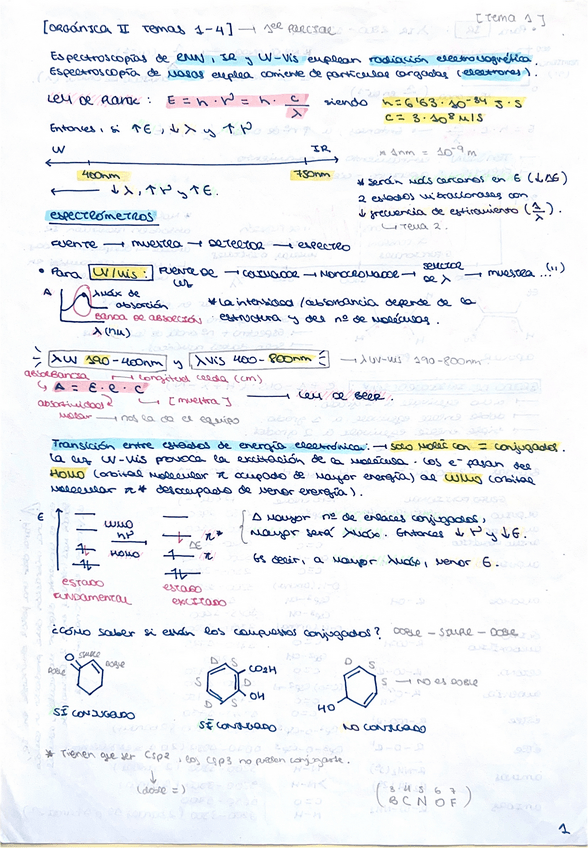 [ORGÁNICA II TEMAS 1-4] → 1er PARCIAL
[TEMA 1]
Espectroscopías de RMN, IR y UV-Vis emplean radiación electromagnética.
Espectroscopía de masas emplea corriente de partículas cargadas (electrones).
LEY DE PLANK: E = h · ν = h · c/λ siendo h = 6'63 · 10^-34 J · S
C = 3 · 10^8 M/S
Entonces, si ↑E, ↓λ y ↑ν
UV IR * 1nm = 10^-9 m
400nm 750nm
← ↓λ, ↑ν y ↑E.
* Serán más cercanos en E (↓ΔE)
2 estados vibracionales con
↓ frecuencia de estiramiento (1/λ)
↳ TEMA 2.
ESPECTRÓMETROS
FUENTE → MUESTRA → DETECTOR → ESPECTRO
• Para UV/vis: FUENTE DE LUZ → → MONOCROMADOR → SELECTOR DE λ → MUESTRA ...(")
A λmáx de absorción
BANDA DE ABSORCIÓN
λ (nm)
* La intensidad/absorbancia depende de la
estructura y del nº de moléculas.
λUV 190-400nm y λvis 400-800nm → λUV-vis 190-800nm
absorbancia → longitud celda (cm)
A = ε · l · c → LEY DE BEER.
absortividad molar → nos la da el equipo
[muestra]
Transición entre estados de energía electrónica: → solo molec con = conjugados.
La luz UV-Vis provoca la excitación de la molécula. Los e- pasan del
HOMO (orbital molecular π ocupado de mayor energía) al LUMO (orbital
molecular π* desocupado de menor energía).
E LUMO hν HOMO π* ΔE π
ESTADO FUNDAMENTAL
ESTADO EXCITADO
A mayor nº de enlaces conjugados,
mayor será λmáx. Entonces ↓ν y ↓E.
Es decir, a mayor λmáx, menor E.
¿Cómo saber si están los compuestos conjugados? DOBLE - SIMPLE - DOBLE
O SIMPLE DOBLE DOBLE
D S S D D S CO2H OH
D S S → NO ES DOBLE HO
SÍ CONJUGADO SÍ CONJUGADO NO CONJUGADO
* Tienen que ser Csp2, los Csp3 no pueden conjugarse.
↓
(doble =)
(3 4 5 6 7
B C N O F)
1